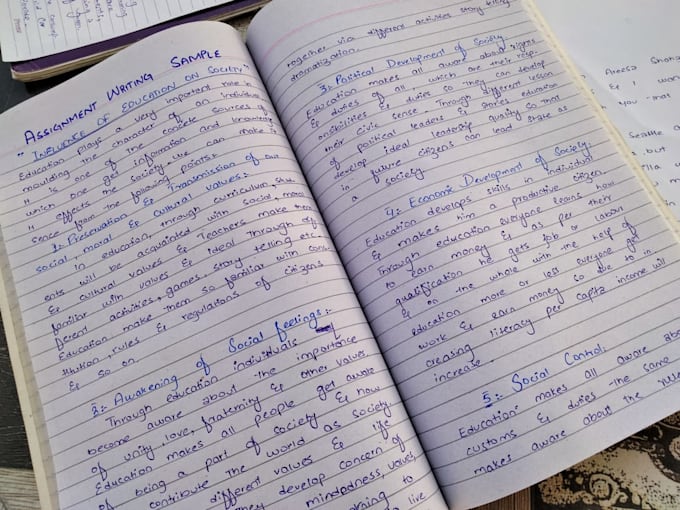 ASSIGNMENT WRITING SAMPLE
"INFLUENCE OF EDUCATION ON SOCIETY"
Education plays a very important role in
moulding the character of an individual
It is one of the concete sources of
which one get information and knowledge
It effects the society we can make is
sense from the following points:
1:- Preservation & Transmission of our
social, moral & cultural values:-
In education, through curriculum, stud
ents will be acquainted with social, moral
& cultural values & Teachers make them
familiar with values & ideal Through dif
ferent activities, games, story telling etc.
Education make them so familiar with cons
titution, rules & regulations of citizens
& so on.
2:- Awakening of Social feelings:-
Through education individuals
become aware about the importance
of unity, love, fraternity & other values.
Education makes all people get aware
of being a part of society & how
contribute The world as society
different values & life
They develop concern of
mindedness, values
to
live
together via different activities story telling
dramatization.
3:- Political Development of Society:-
Education makes all aware about rights
& duties of all, which are their resp
onsibilities & duties so They can develop
their civic sense. Through different lesson
of political leaders & stories education
develop ideal leadership quality so that
in future citizens can lead state as
a society.
4:- Economic Development of Society:
Education develops skills in individual
& makes him a productive citizen.
Through education everyone learns how
to earn money & as per The
qualification he gets job or labour
& on the whole with the help of
education more or less everyone get
work & earn money so due to in
creasing literacy per capita income will
increase.
5:- Social Control:
Education makes all aware abo
customs & duties the same
makes aware about the rules
Areesa
& I want
you
Seattle
but